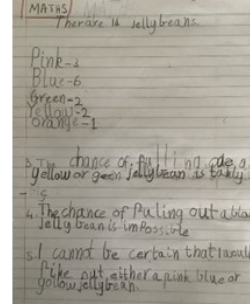 MATHS
Therare 14 jellybeans.
Pink-3
Blue-6
Green-2
Yellow-2
orange-1
3. The chance of pulling ode a
yellow or geen jellybean is
4. The chance of Puling out a bla
Jelly bean is impossible
5. I cannot be certain that I would
Pike out either a pink blue or
yollow jellybean.